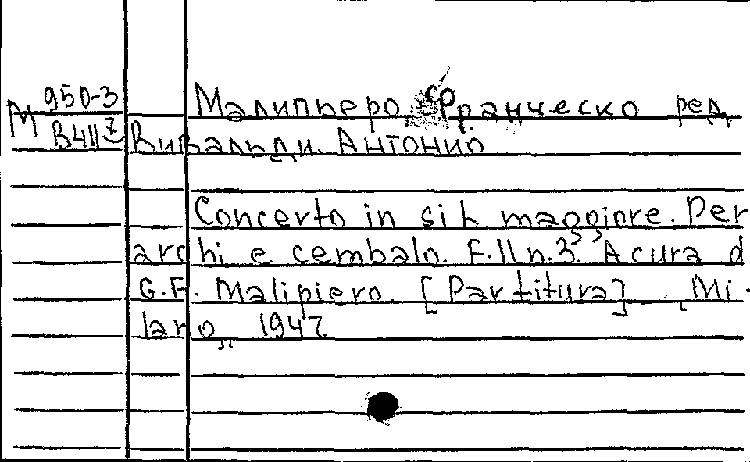 М 950-3
Малипьеро, Франческо ред.
В411
Вивальди, Антонио
Concerto in si b maggiore. Per
archi e cembalo. F. II n. 3. A cura d
G. F. Malipiero. [Partitura] [Mi-
lano], 1947